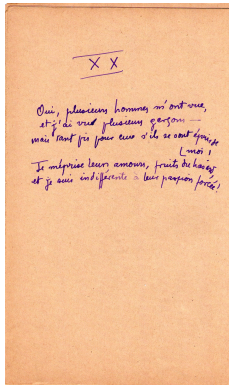 XX
Oui, plusieurs hommes m'ont vue,
et j'ai vu plusieurs garçons —
mais tant pis pour eux s'ils se sont épris de
moi !
Je méprise leurs amours, fruits du hasard
et je suis indifférente à leur passion forcée !